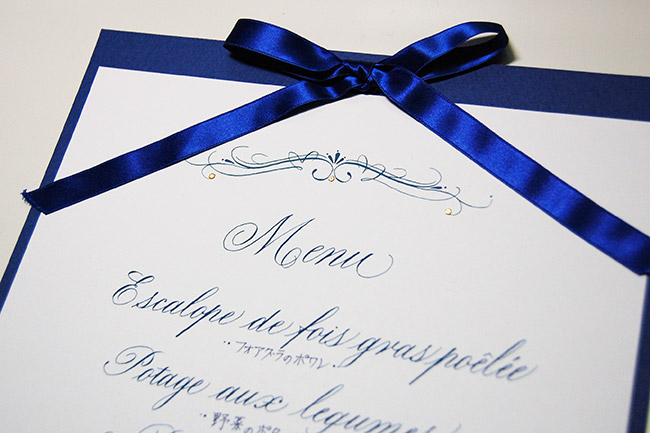 Menu
Escalope de fois gras poêlée
フォアグラのポワレ
Potage aux legumes
野菜のポタ